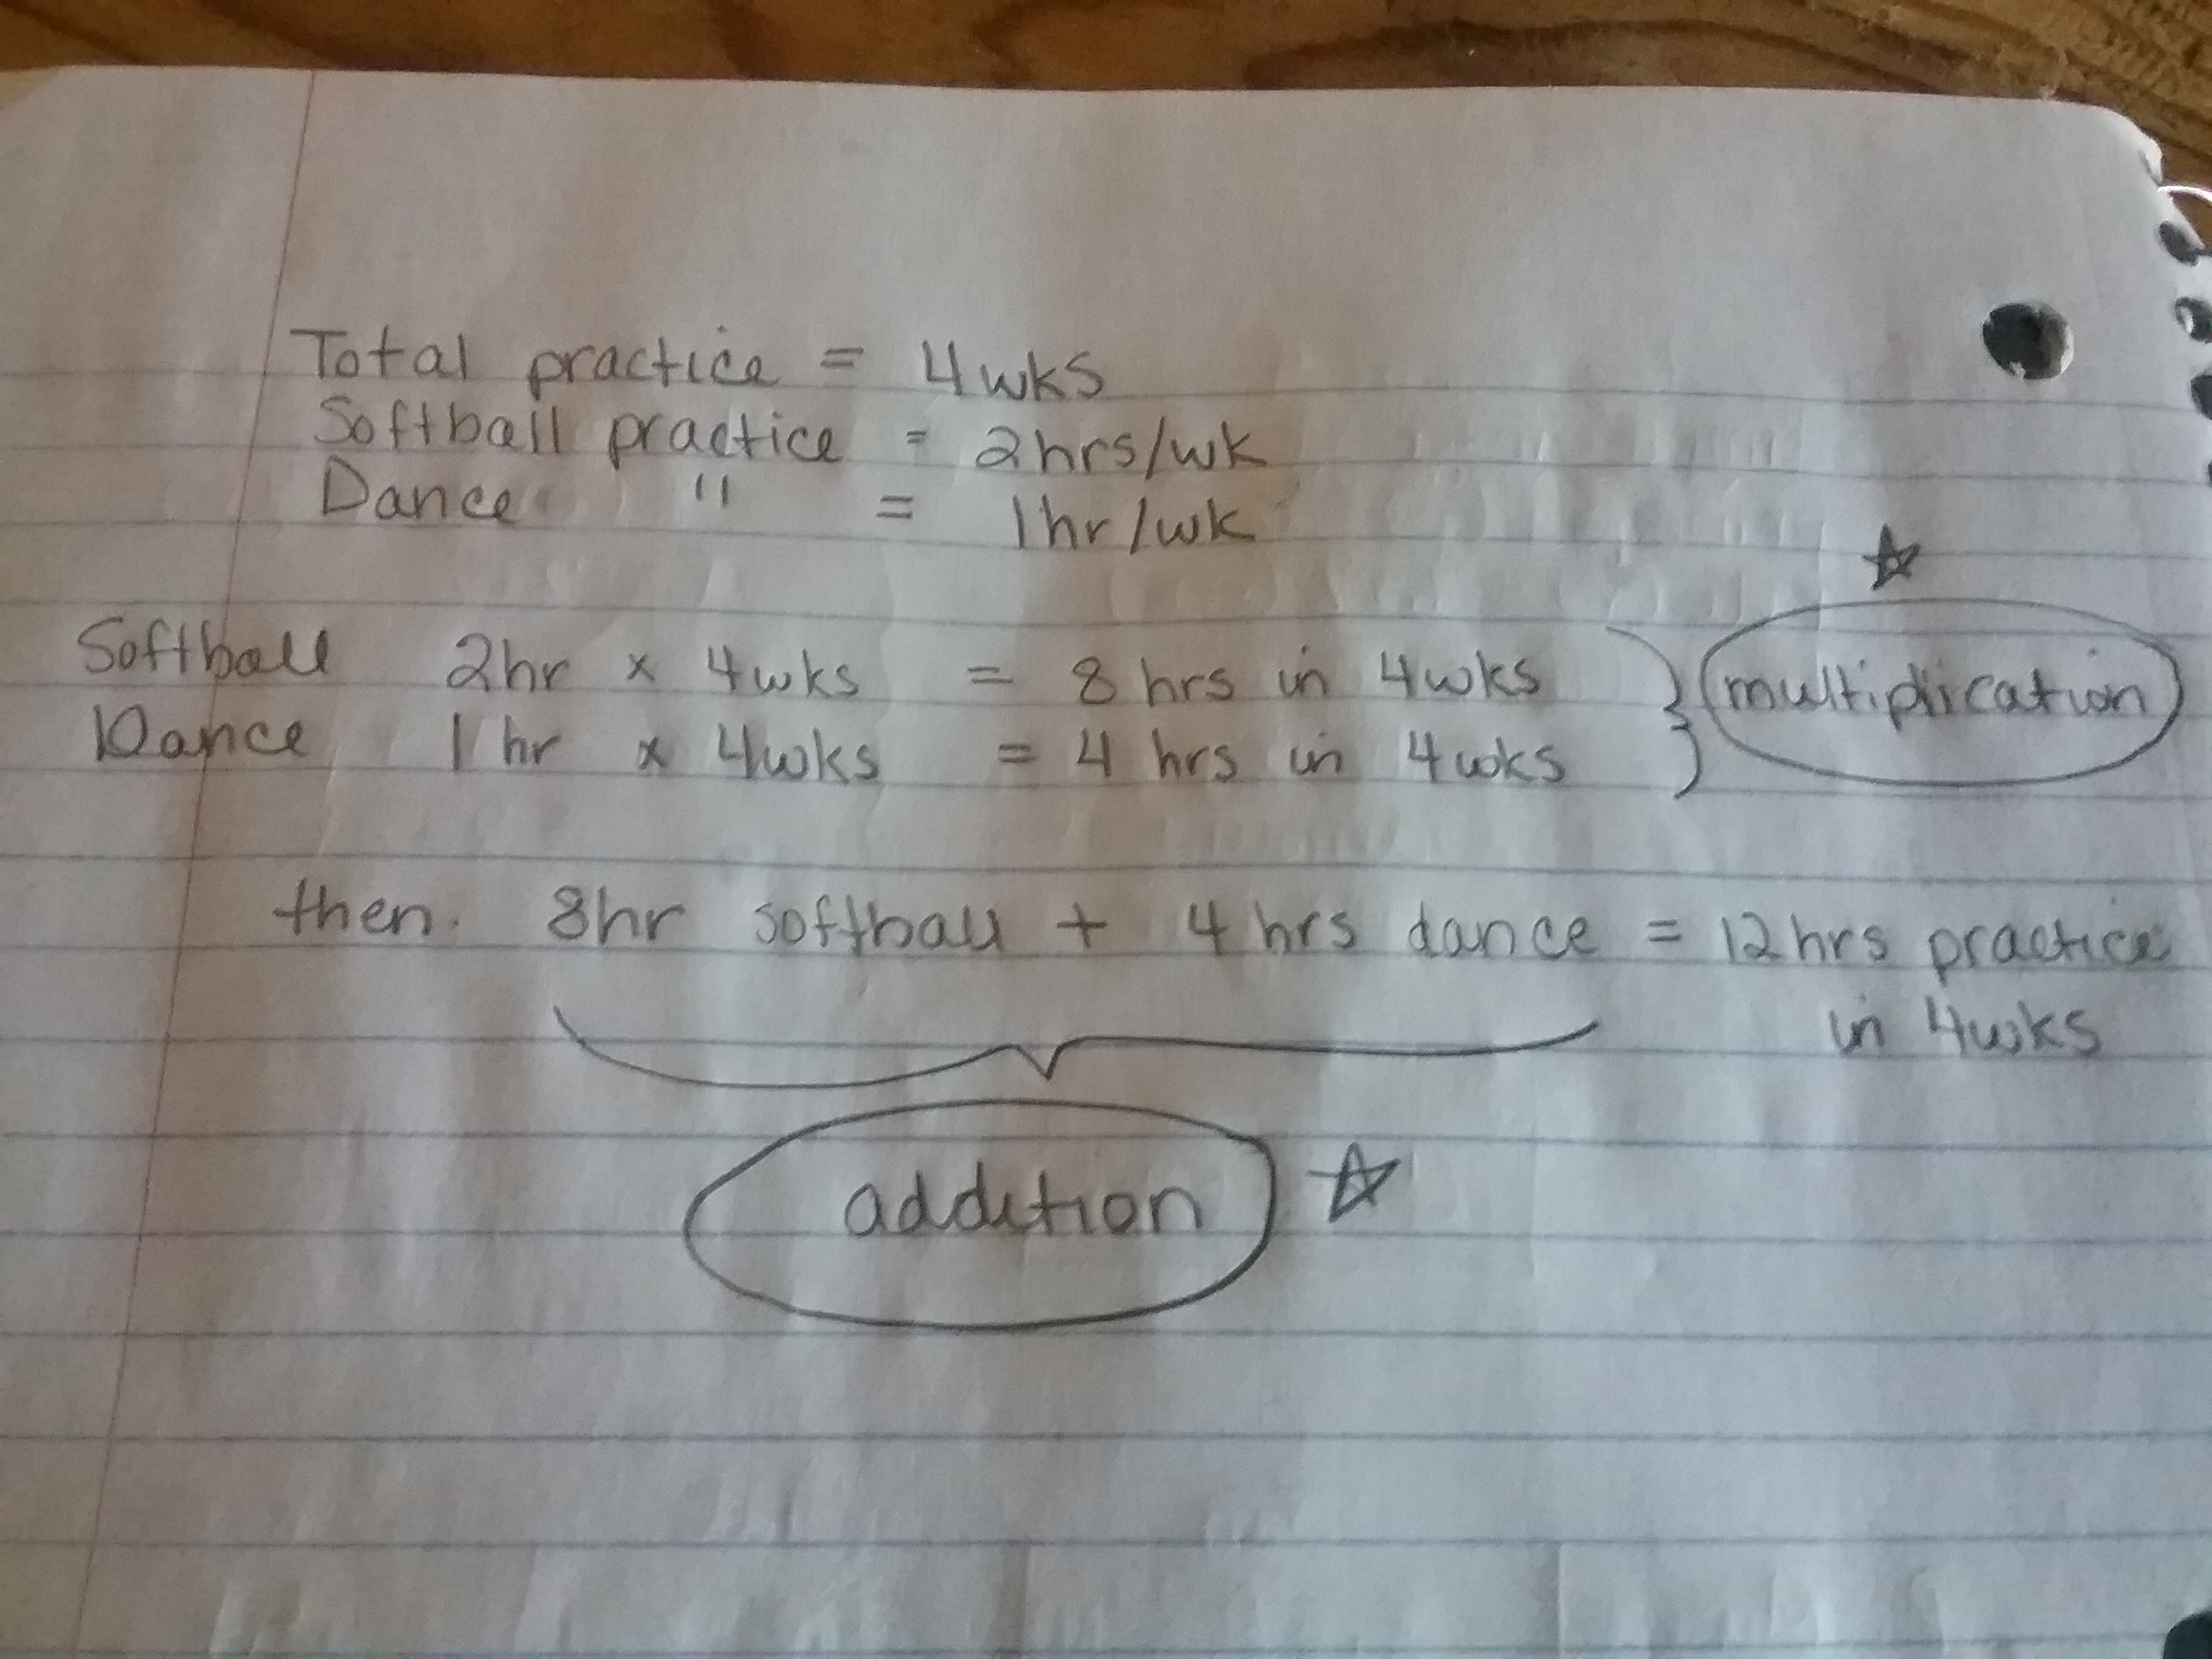 Total practice = 4wks
Softball practice = 2hrs/wk
Dance " = 1hr/wk
Softball 2hr x 4wks = 8 hrs in 4wks
Dance 1 hr x 4wks = 4 hrs in 4wks
multiplication
then. 8hr softball + 4 hrs dance = 12hrs practice
in 4wks
addition